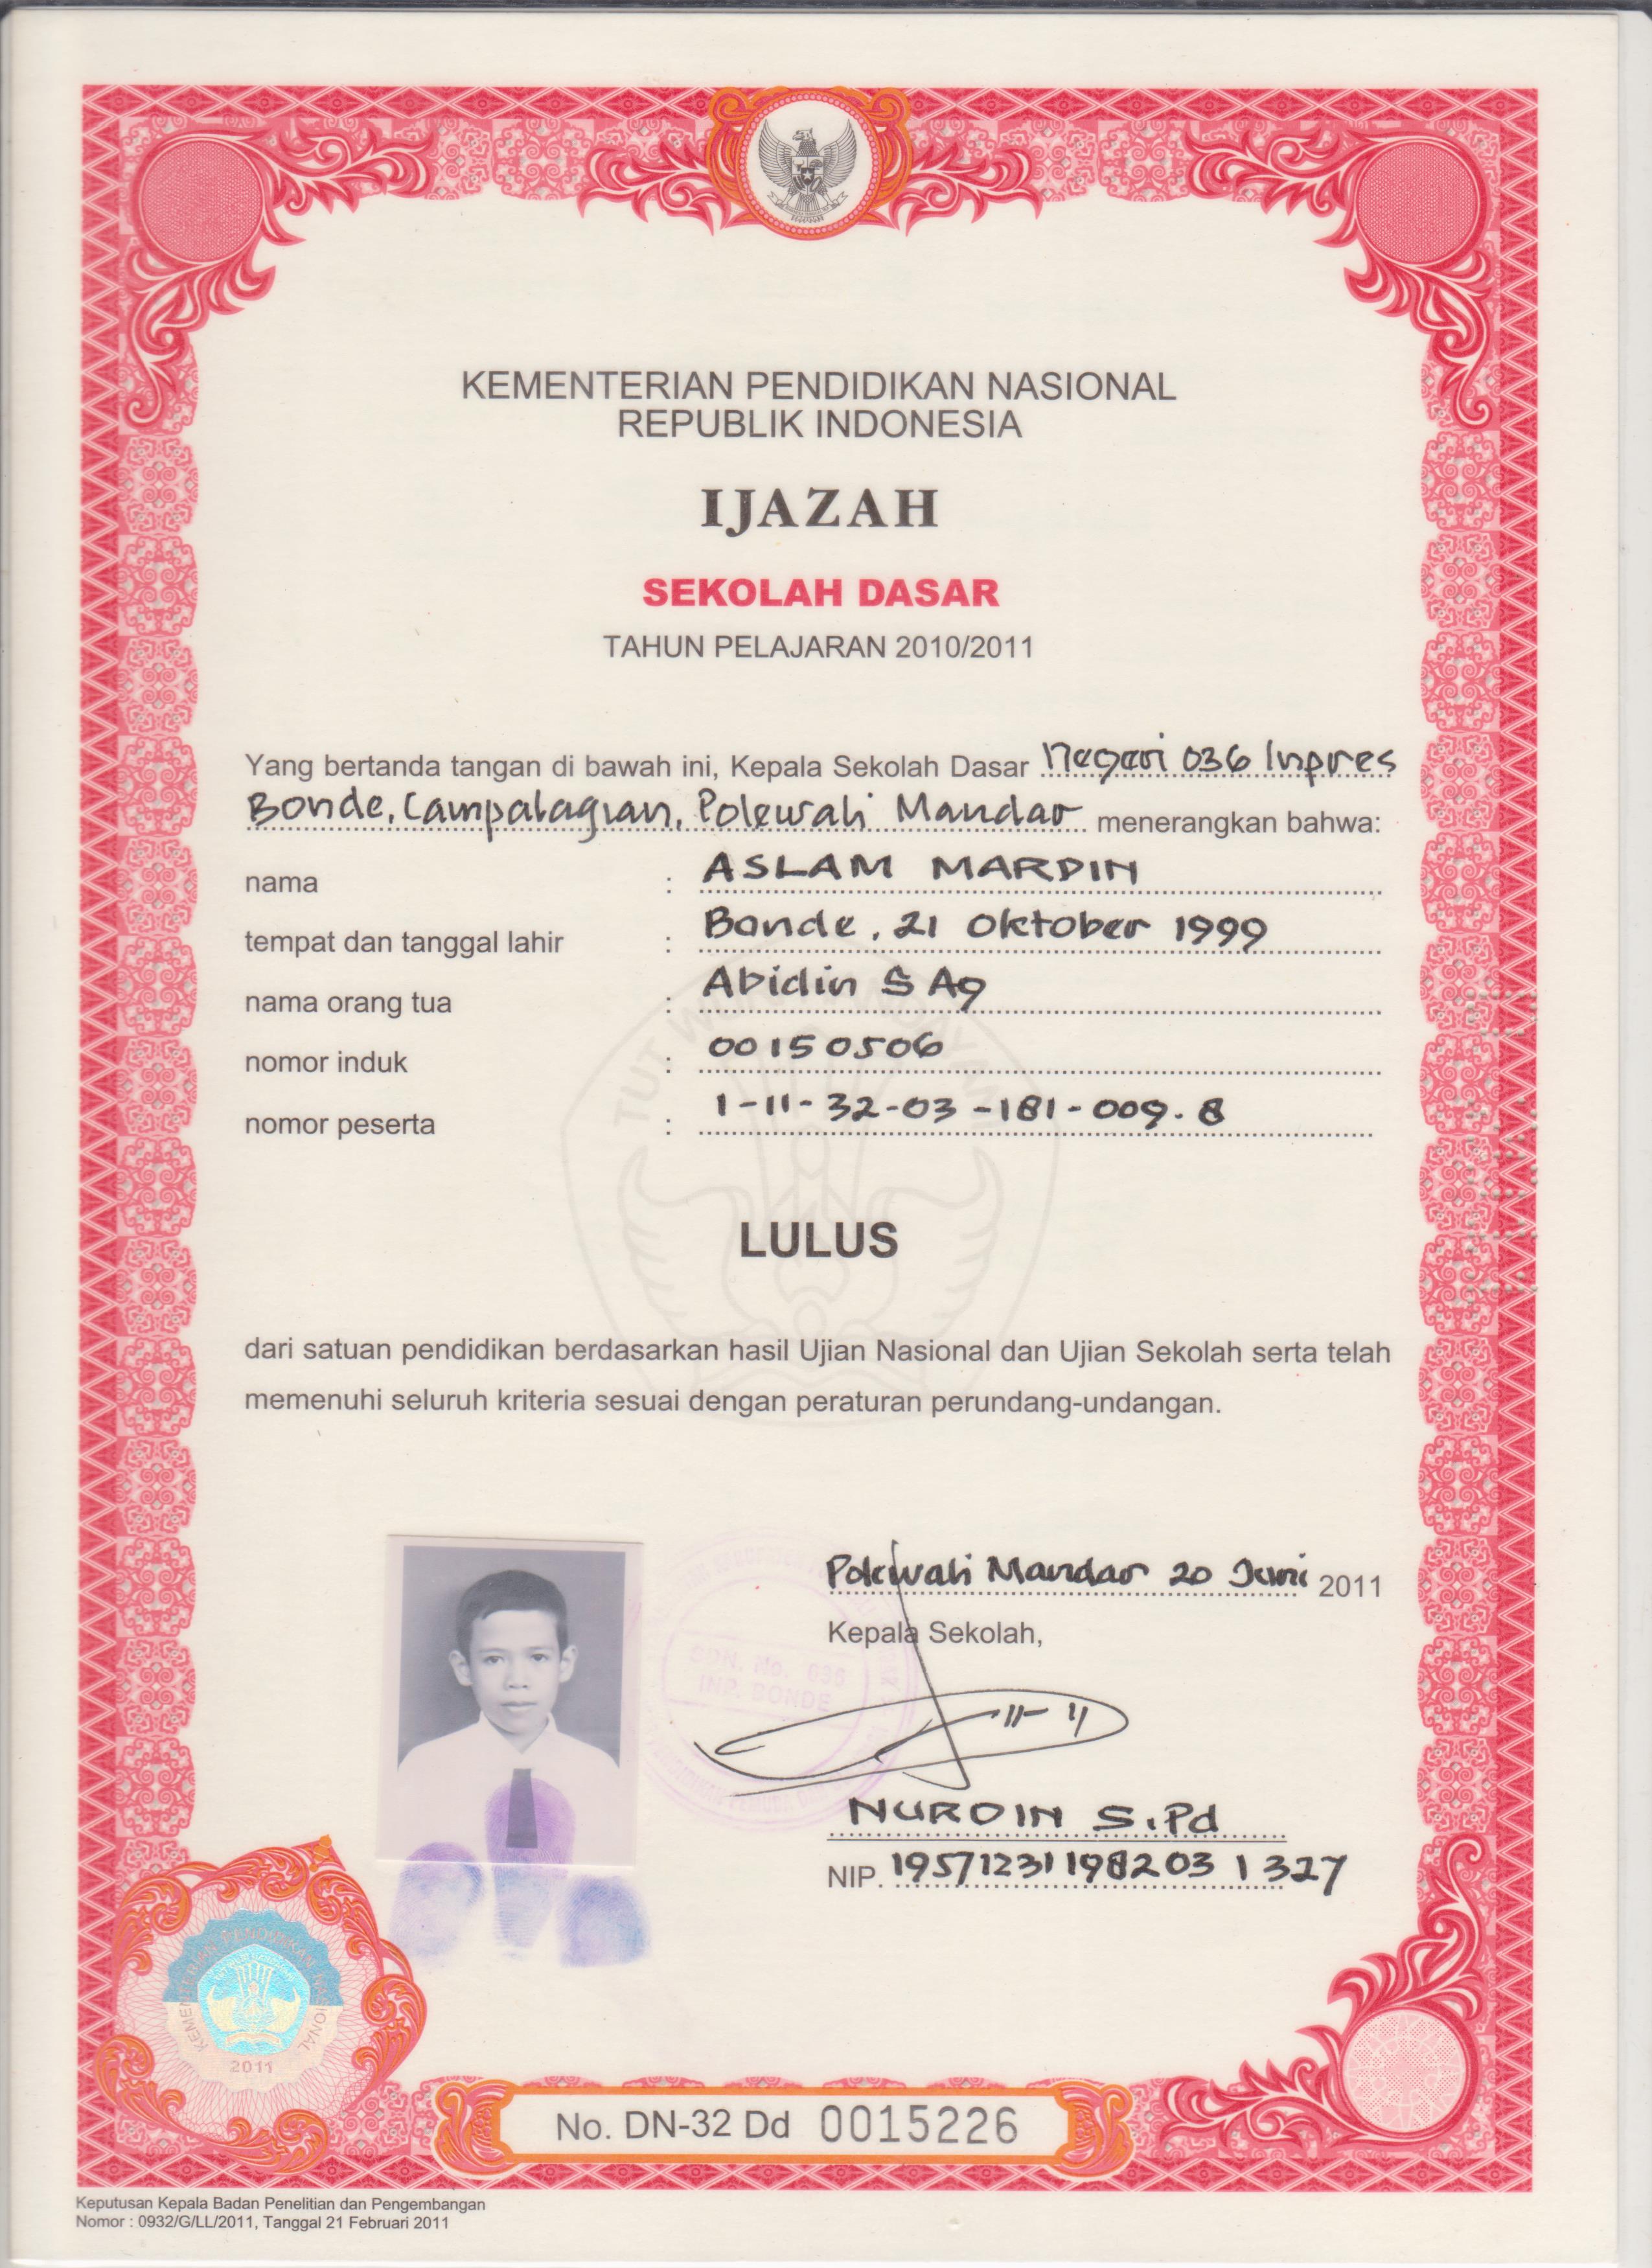 KEMENTERIAN PENDIDIKAN NASIONAL
REPUBLIK INDONESIA
IJAZAH
SEKOLAH DASAR
TAHUN PELAJARAN 2010/2011
Yang bertanda tangan di bawah ini, Kepala Sekolah Dasar Negeri 036 Inpres
Bonde, Campalagian, Polewali Mandar menerangkan bahwa:
nama : ASLAM MARDIN
tempat dan tanggal lahir : Bonde, 21 Oktober 1999
nama orang tua : Abidin S Ag
nomor induk : 00150506
nomor peserta : 1-11-32-03-181-009.8
TUT WURI HANDAYANI
LULUS
dari satuan pendidikan berdasarkan hasil Ujian Nasional dan Ujian Sekolah serta telah
memenuhi seluruh kriteria sesuai dengan peraturan perundang-undangan.
Polewali Mandar 20 Juni 2011
Kepala Sekolah,
SDN. No. 036
INP. BONDE
NURDIN S.Pd
NIP. 19571231198203 1 327
KEMENTERIAN PENDIDIKAN NASIONAL
2011
No. DN-32 Dd 0015226
Keputusan Kepala Badan Penelitian dan Pengembangan
Nomor : 0932/G/LL/2011, Tanggal 21 Februari 2011